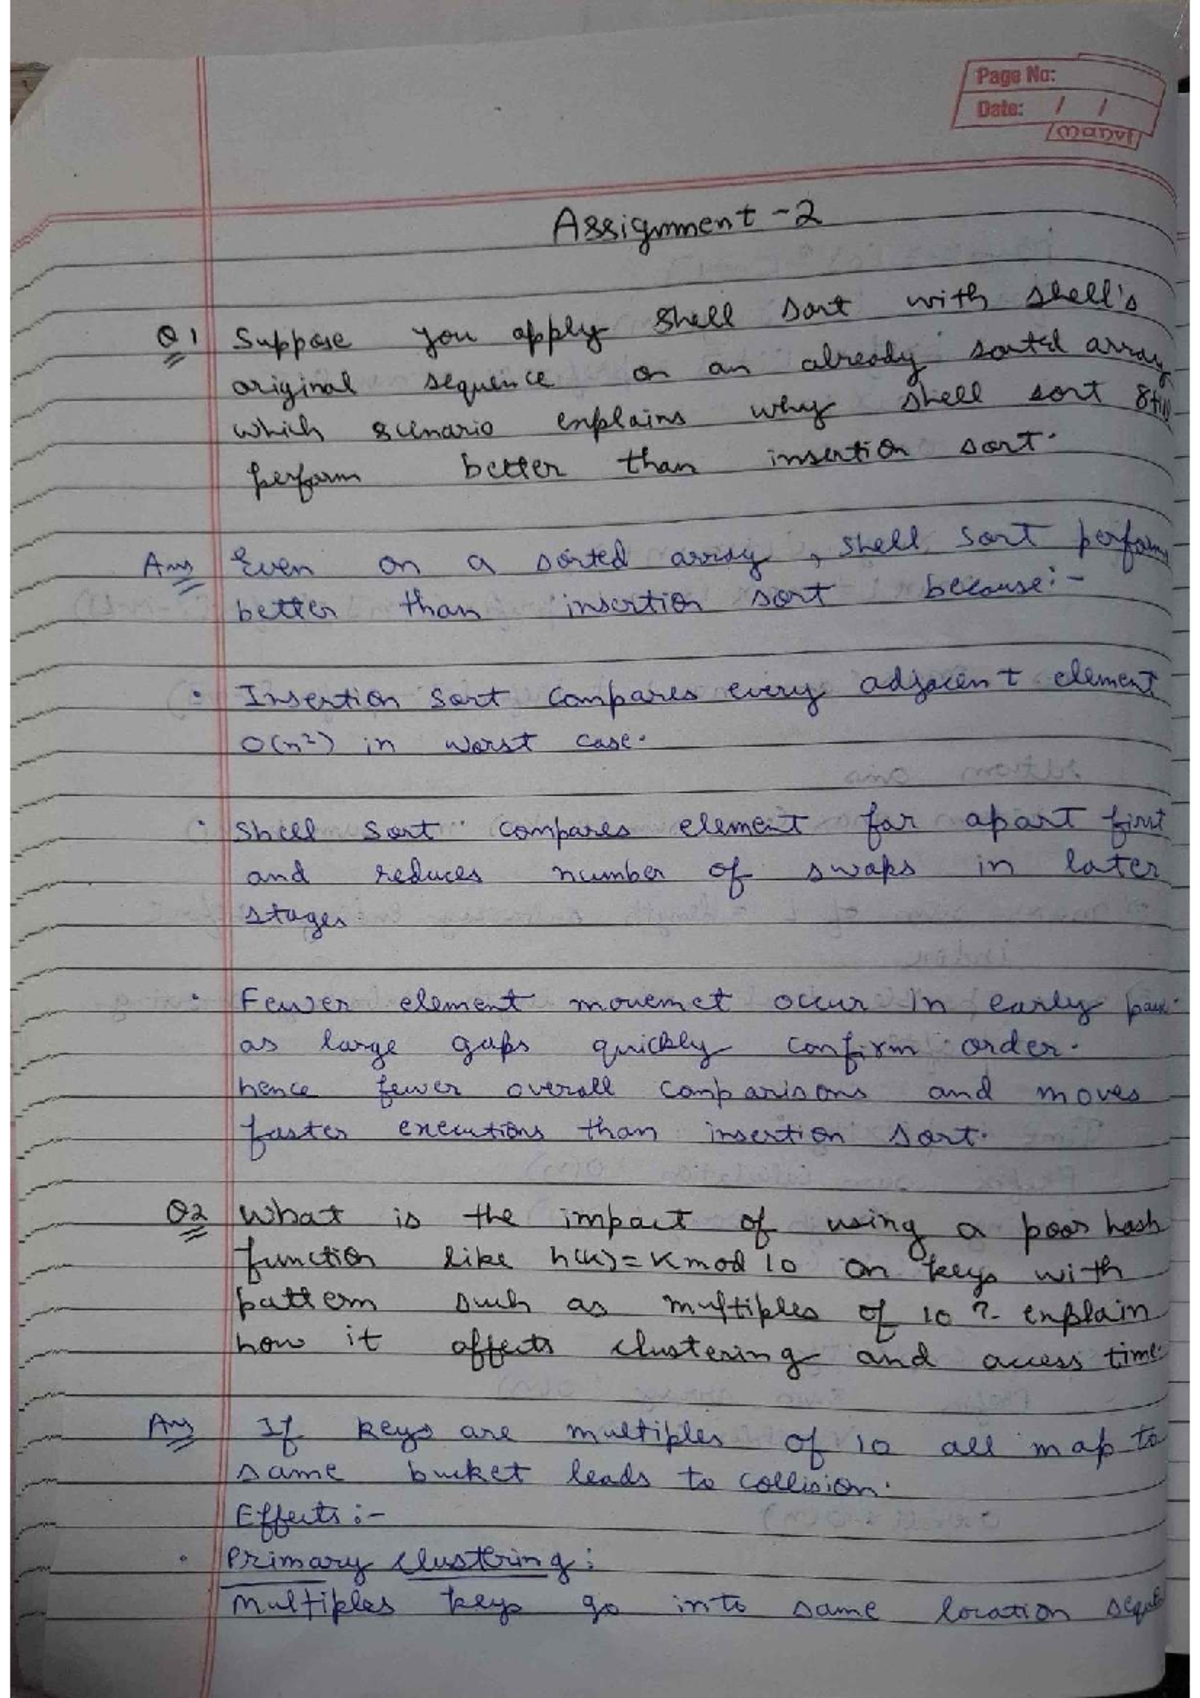 Page No:
Date: / /
manvi
Assignment-2
Q1 Suppose you apply Shell sort with shell's
original sequence on an already sorted array
which scenario explains why shell sort still
perform better than insertion sort.
Ans Even on a sorted array, shell sort perform
better than insertion sort because:-
• Insertion sort compares every adjacent element
O(n²) in worst case.
• Shell sort compares element far apart first
and reduces number of swaps in later
stages.
• Fewer element movemet occur in early
as large gaps quickly confirm order.
hence fewer overall comparisons and moves
faster executions than insertion sort.
Q2 What is the impact of using a poor hash
function like h(k)=K mod 10 on keys with
pattern such as multiples of 10? explain
how it affects clustering and access time.
Ans If keys are multiples of 10 all map to
same bucket leads to collision.
Effects:-
• Primary clustering:
Multiples keys go into same location